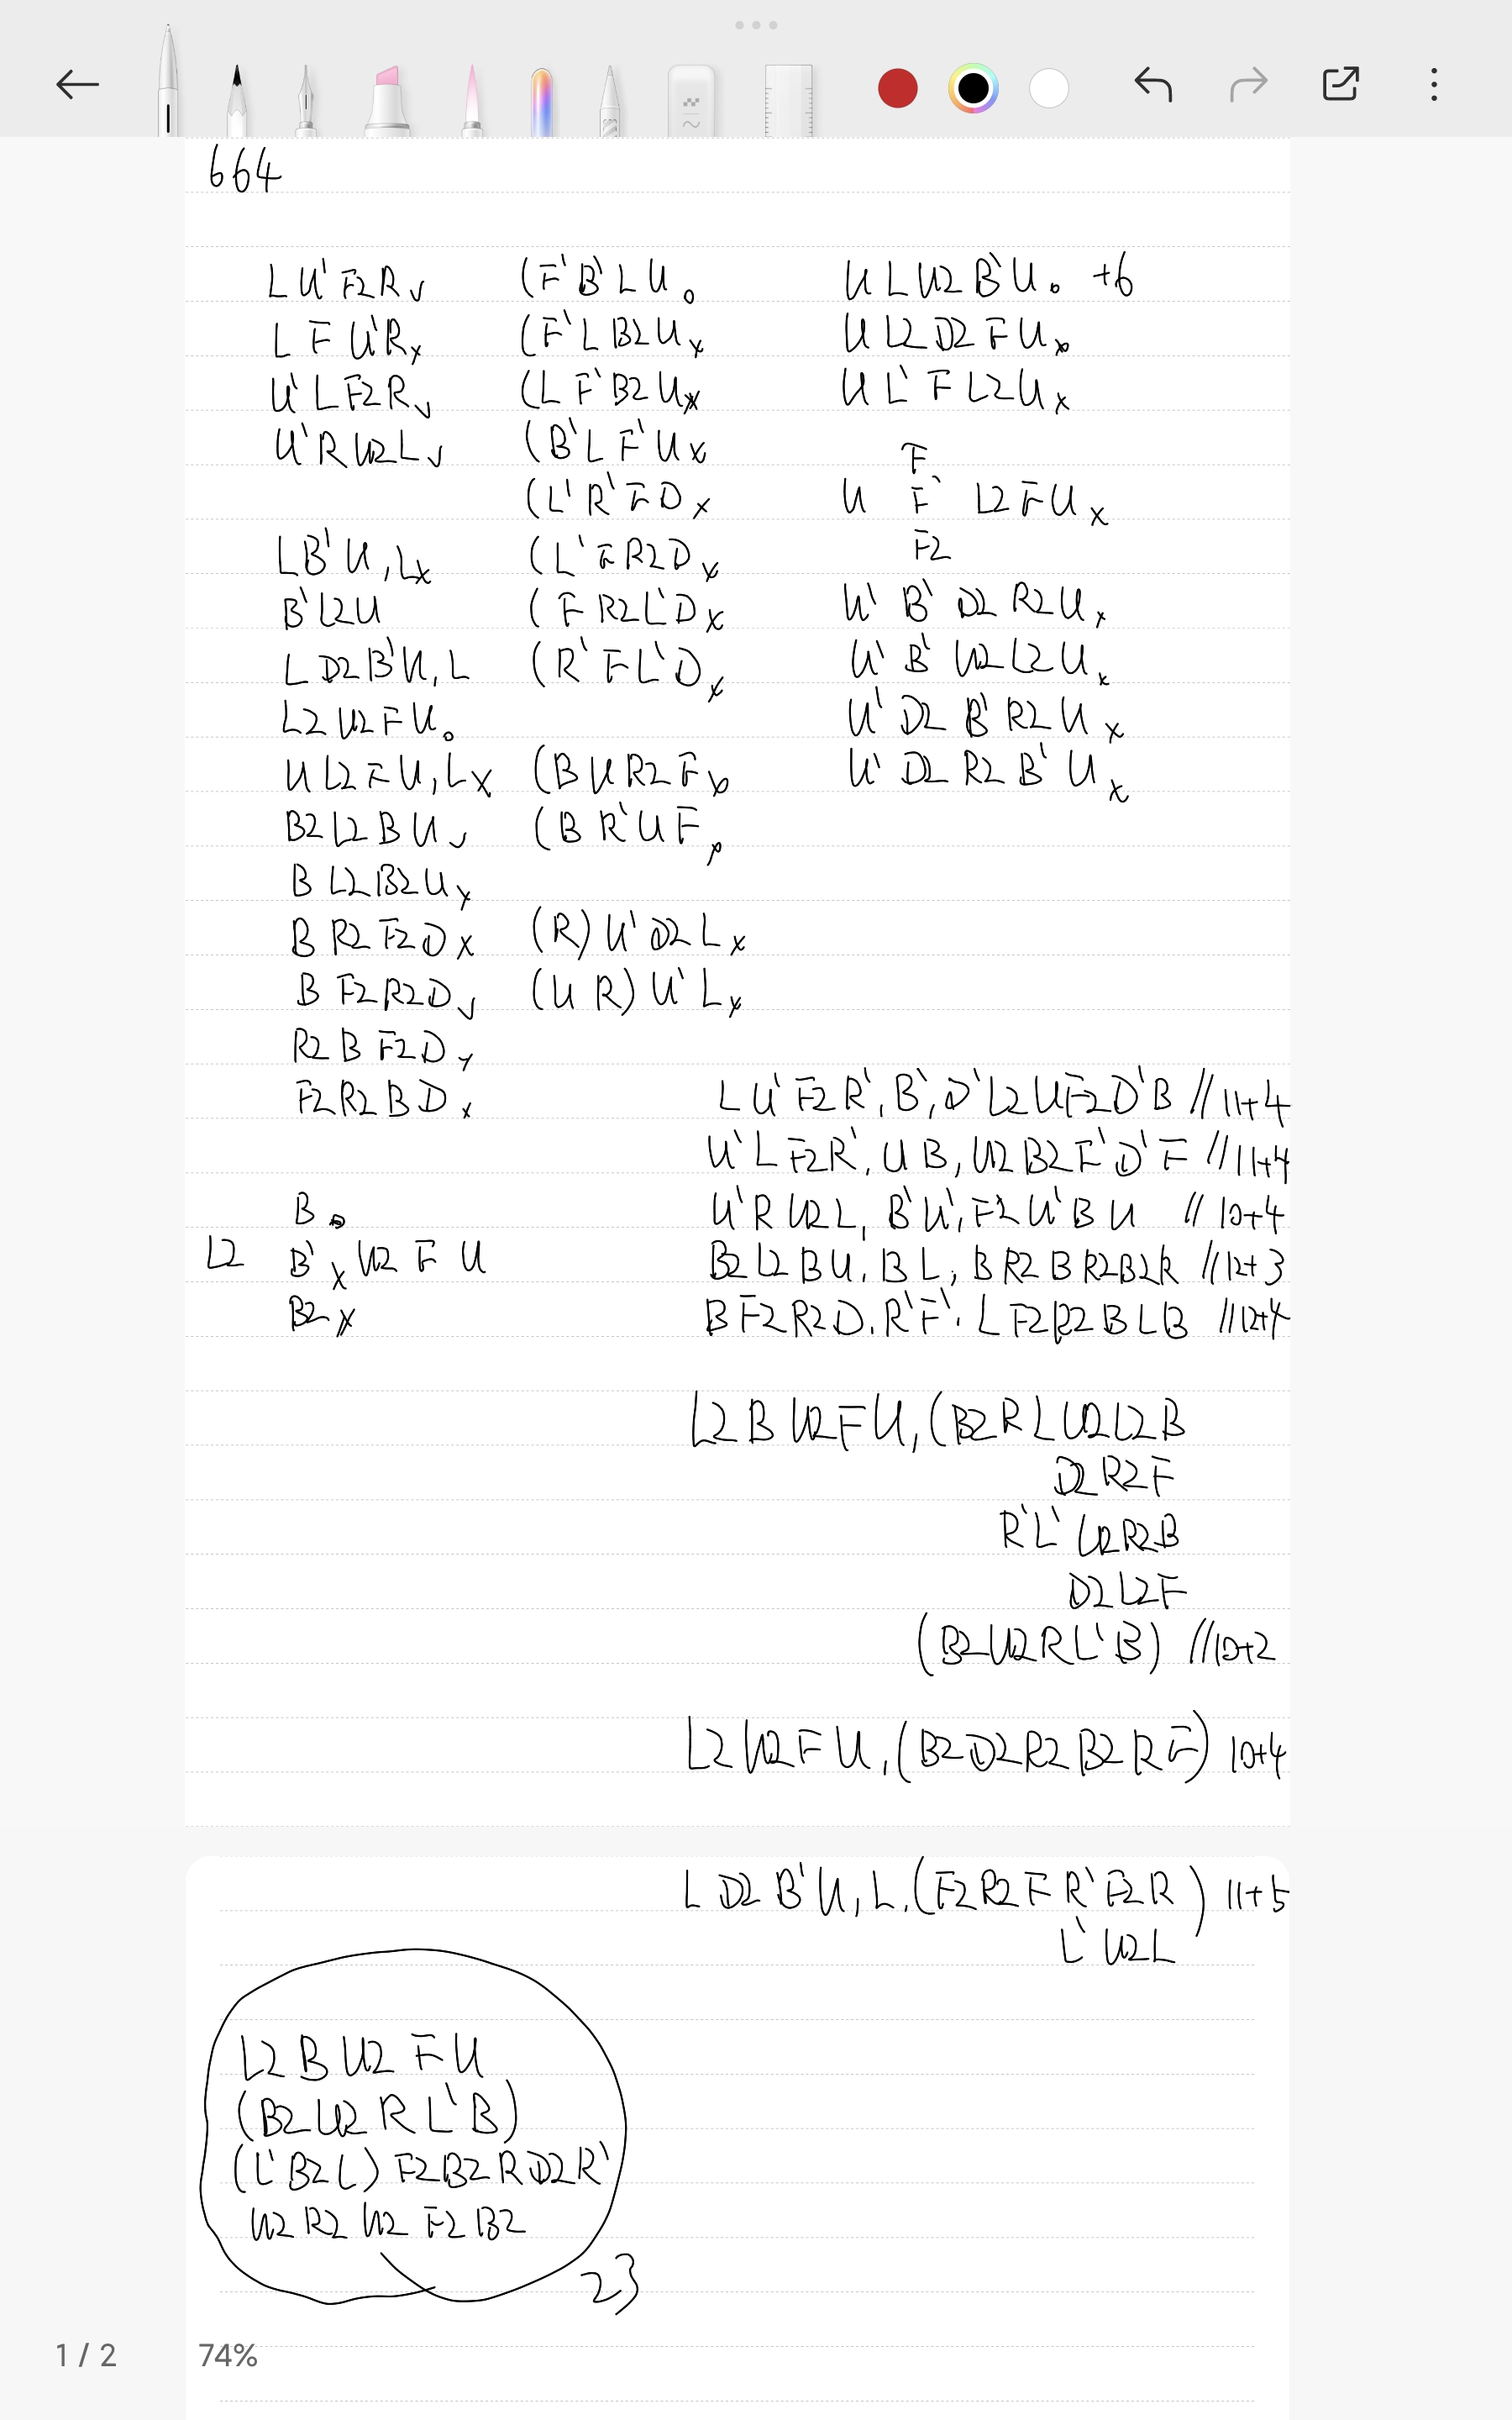 664
L U' F2 R✓ (F' B' L U o U L U2 B' U o +6
L F U' R x (F' L B2 U x U L2 D2 F U x
U' L F2 R✓ (L F' B2 U x U L' F L2 U x
U' R U2 L✓ (B' L F' U x F
(L' R' F D x U F' L2 F U x
L B' U, L x (L' F R2 D x F2
B' L2 U (F R2 L' D x U' B' D2 R2 U x
L D2 B' U, L (R' F L' D x U' B' U2 L2 U x
L2 U2 F U o U' D2 B' R2 U x
U L2 F U, L x (B U R2 F U' D2 R2 B' U x
B2 L2 B U✓ (B R' U F
B L2 B2 U x
B R2 F2 D x (R) U' D2 L x
B F2 R2 D✓ (U R) U' L x
R2 B F2 D x
F2 R2 B D x L U' F2 R', B', D' L2 U F2 D' B // 11+4
U' L F2 R', U B, U2 B2 F' D' F // 11+4
B o U' R U2 L, B' U', F2 U' B U // 10+4
L2 B' x U2 F U B2 L2 B U, B L, B R2 B R2 B2 R // 12+3
B2 x B F2 R2 D, R' F', L F2 R2 B L B // 12+4
L2 B U2 F U, (B2 R L U2 L2 B
D2 R2 F
R' L' U2 R2 B
D2 L2 F
(B2 U2 R L' B) // 10+2
L2 U2 F U, (B2 D2 R2 B2 R F) 10+4
L D2 B' U, L, (F2 R2 F R' F2 R) 11+5
L' U2 L
L2 B U2 F U
(B2 U2 R L' B)
(L' B2 L) F2 B2 R D2 R'
U2 R2 U2 F2 B2
23
1 / 2 74%